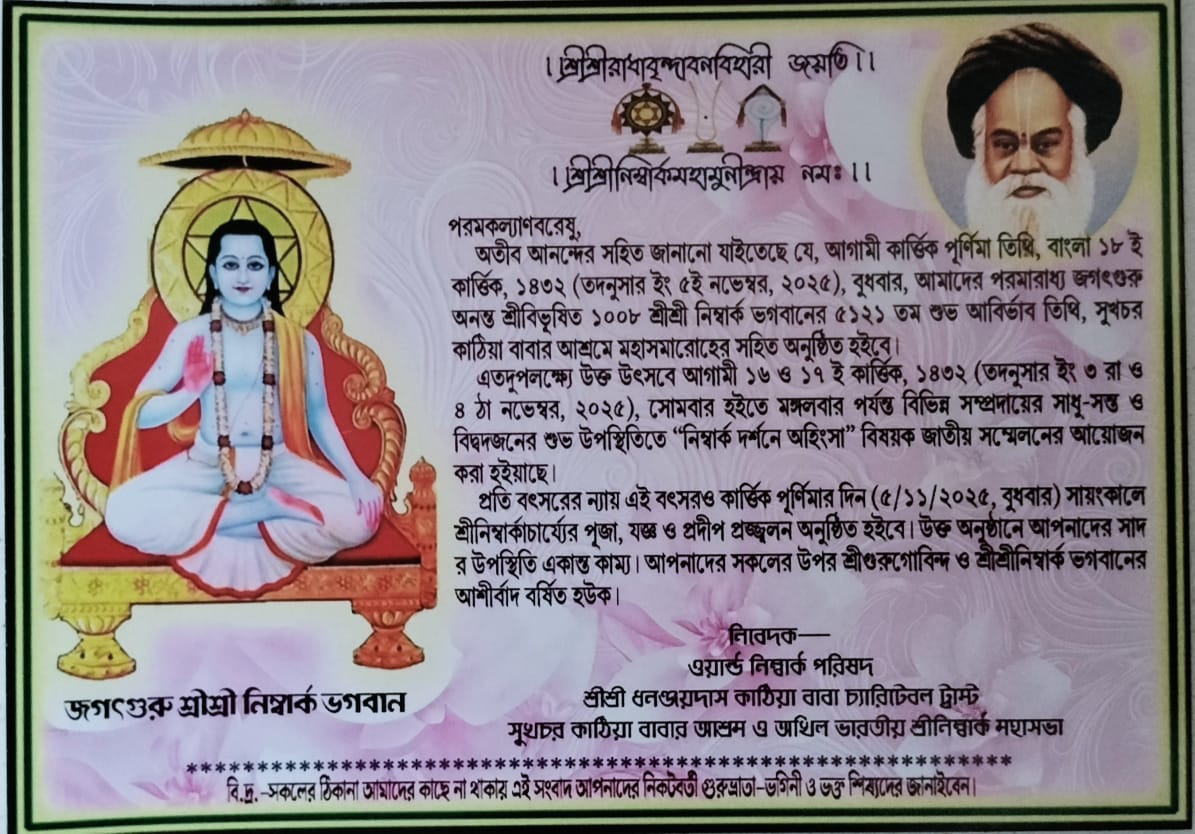 ।।শ্রীশ্রীরাধাবৃন্দাবনবিহারী জয়তি।।
।।শ্রীশ্রীনিম্বার্কমহামুনীন্দ্রায় নমঃ।।
পরমকল্যাণবরেষু,
অতীব আনন্দের সহিত জানানো যাইতেছে যে, আগামী কার্ত্তিক পূর্ণিমা তিথি, বাংলা ১৮ ই
কার্ত্তিক, ১৪৩২ (তদনুসার ইং ৫ই নভেম্বর, ২০২৫), বুধবার, আমাদের পরমারাধ্য জগৎগুরু
অনন্ত শ্রীবিভূষিত ১০০৮ শ্রীশ্রী নিম্বার্ক ভগবানের ৫১২১ তম শুভ আবির্ভাব তিথি, সুখচর
কাঠিয়া বাবার আশ্রমে মহাসমারোহের সহিত অনুষ্ঠিত হইবে।
এতদুপলক্ষ্যে উক্ত উৎসবে আগামী ১৬ ও ১৭ ই কার্ত্তিক, ১৪৩২ (তদনুসার ইং ৩ রা ও
৪ ঠা নভেম্বর, ২০২৫), সোমবার হইতে মঙ্গলবার পর্যন্ত বিভিন্ন সম্প্রদায়ের সাধু-সন্ত ও
বিদ্বদজনের শুভ উপস্থিতিতে “নিম্বার্ক দর্শনে অহিংসা” বিষয়ক জাতীয় সম্মেলনের আয়োজন
করা হইয়াছে।
প্রতি বৎসরের ন্যায় এই বৎসরও কার্ত্তিক পূর্ণিমার দিন (৫/১১/২০২৫, বুধবার) সায়ংকালে
শ্রীনিম্বার্কাচার্য্যের পূজা, যজ্ঞ ও প্রদীপ প্রজ্জ্বলন অনুষ্ঠিত হইবে। উক্ত অনুষ্ঠানে আপনাদের সাদ
র উপস্থিতি একান্ত কাম্য। আপনাদের সকলের উপর শ্রীগুরুগোবিন্দ ও শ্রীশ্রীনিম্বার্ক ভগবানের
আশীর্বাদ বর্ষিত হউক।
নিবেদক—
ওয়ার্ল্ড নিম্বার্ক পরিষদ
শ্রীশ্রী ধনঞ্জয়দাস কাঠিয়া বাবা চ্যারিটেবল ট্রাস্ট
সুখচর কাঠিয়া বাবার আশ্রম ও অখিল ভারতীয় শ্রীনিম্বার্ক মহাসভা
জগৎগুরু শ্রীশ্রী নিম্বার্ক ভগবান
বি.দ্র.-সকলের ঠিকানা আমাদের কাছে না থাকায় এই সংবাদ আপনাদের নিকটবর্তী গুরুভ্রাতা-ভগিনী ও ভক্ত শিষ্যদের জানাইবেন।